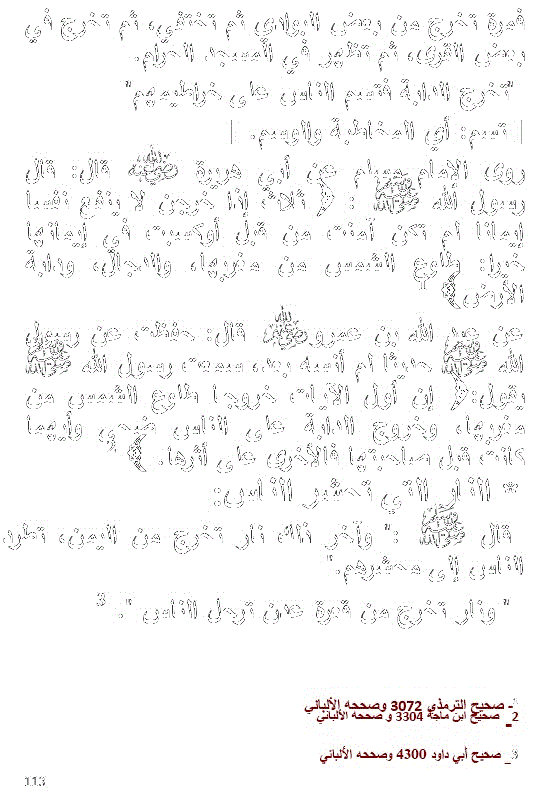 فمرة تخرج من بعض البوادي ثم تختفي، ثم تخرج في
بعض القرى، ثم تظهر في المسجد الحرام.
"تخرج الدابة فتسم الناس على خراطيمهم"
[ تسيم: أي المخاطبة والوسم. ]
روى الإمام مسلم عن أبي هريرة ﵁ قال: قال
رسول الله ﷺ : ﴿ ثلاث إذا خرجن لا ينفع نفسا
إيمانها لم تكن آمنت من قبل أوكسبت في إيمانها
خيرا: طلوع الشمس من مغربها، والدجال، ودابة
الأرض﴾1
عن عبد الله بن عمرو﵁ قال: حفظت عن رسول
الله ﷺ حديثا لم أنسه بعد، سمعت رسول الله ﷺ
يقول:﴿ إن أول الآيات خروجا طلوع الشمس من
مغربها، وخروج الدابة على الناس ضحى وأيهما
كانت قبل صاحبتها فالأخرى على أثرها. ﴾2
* النار التي تحشر الناس:
قال ﷺ :" وآخر ذلك نار تخرج من اليمن، تطرد
الناس إلى محشرهم."
" ونار تخرج من قعرة عدن ترحل الناس ". 3
1- صحيح الترمذي 3072 وصححه الألباني
2_ صحيح ابن ماجة 3304 و صححه الألباني
3_ صحيح أبي داود 4300 وصححه الألباني
113